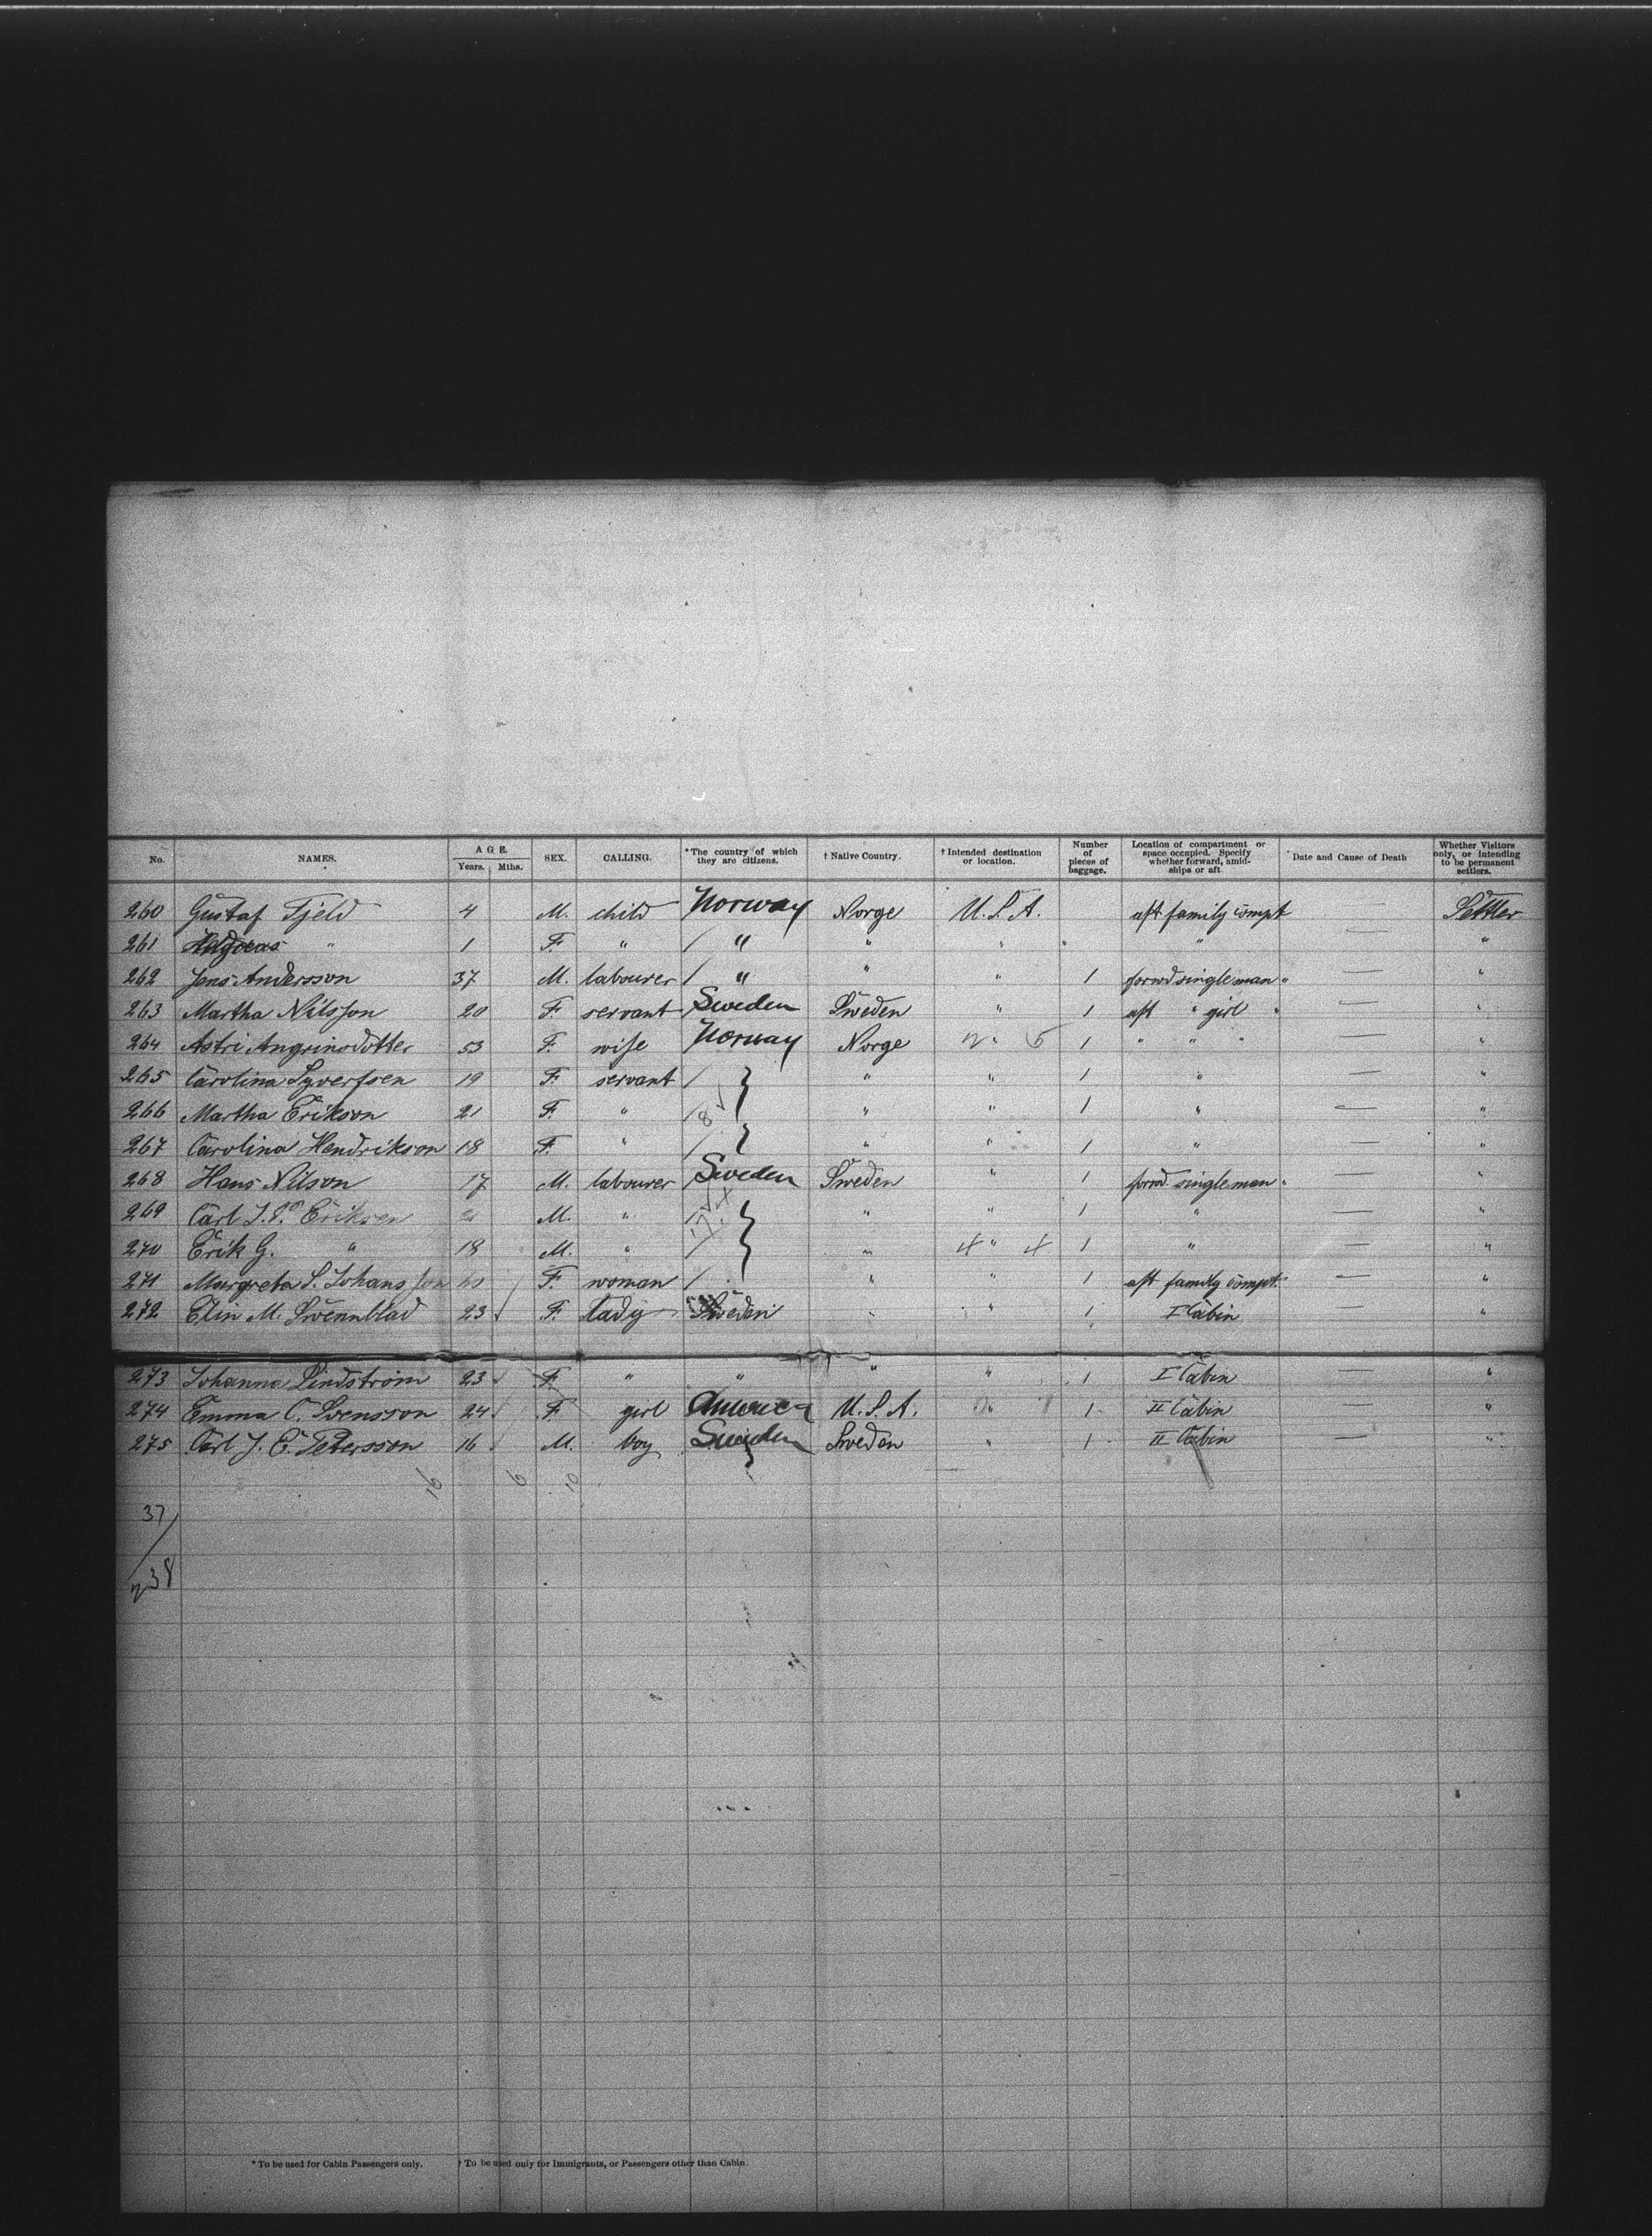 No. NAMES. AGE. Years. Mths. SEX. CALLING. *The country of which they are citizens. † Native Country. † Intended destination or location. Number of pieces of baggage. Location of compartment or space occupied. Specify whether forward, amidships or aft Date and Cause of Death Whether Visitors only, or intending to be permanent settlers.
260 Gustaf Fjeld 4 M. child Norway Norge U.S.A. aft family compt — Settler
261 " 1 F. " / " " " " " — "
262 Jens Andersson 37 M. labourer / " " " 1 forwd single man " — "
263 Martha Nilsson 20 F. servant Sweden Sweden " 1 aft " girl " — "
264 Astri Angrinsdotter 53 F. wife Norway Norge " 5 1 " " " — "
265 Carolina Syversen 19 F. servant / } " " 1 " — "
266 Martha Erikson 21 F. " / 8 " " 1 " — "
267 Carolina Hendrikson 18 F. " / } " " 1 " — "
268 Hans Nilson 17 M. labourer Sweden Sweden " 1 forwd. single man " — "
269 Carl J. P. Eriksen M. " / } " " 1 " — "
270 Erik G. " 18 M. " / " 4 " 4 1 " — "
271 Margreta S. Johansson F. woman / " " 1 aft family compt. — "
272 Elin M. Svennblad 23 F. lady Sweden " " 1 I Cabin — "
273 Johanna Lindström 23 F. " " " " 1 I Cabin — "
274 Emma C. Svensson 24 F. girl America U.S.A. " 1 II Cabin — "
275 Carl J. E. Petersson 16 M. boy Sweden Sweden " 1 II Cabin — "
16 6 10
37
/
238
* To be used for Cabin Passengers only. † To be used only for Immigrants, or Passengers other than Cabin.